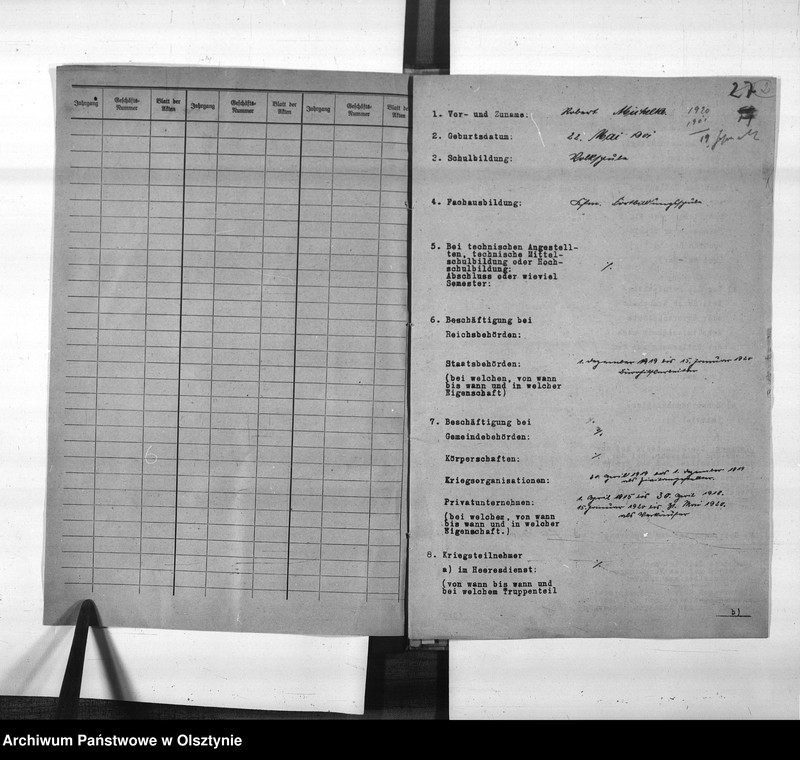 Jahrgang Geschäfts-Nummer Blatt der Akten Jahrgang Geschäfts-Nummer Blatt der Akten Jahrgang Geschäfts-Nummer Blatt der Akten
6
27
1. Vor- und Zuname: Robert 1920
2. Geburtsdatum: 22. Mai 1901
19
3. Schulbildung: Volksschule
4. Fachausbildung: Fortbildungsschule
5. Bei technischen Angestell-
ten, technische Mittel-
schulbildung oder Hoch-
schulbildung: ./.
Abschluss oder wieviel
Semester:
6. Beschäftigung bei
Reichsbehörden:
Staatsbehörden: 1. Dezember 1919 bis 15. Januar 1920
(bei welchen, von wann
bis wann und in welcher
Eigenschaft)
7. Beschäftigung bei ./.
Gemeindebehörden: ./.
Körperschaften: ./.
Kriegsorganisationen: 30. April 1919 bis 1. Dezember 1919
als
Privatunternehmen: 1. April 1915 bis 30. April 1918.
15. Januar 1920 bis 31. Mai 1920.
(bei welchen, von wann als Verkäufer
bis wann und in welcher
Eigenschaft.)
8. Kriegsteilnehmer
a) im Heeresdienst: ./.
(von wann bis wann und
bei welchem Truppenteil
b)
Archiwum Państwowe w Olsztynie